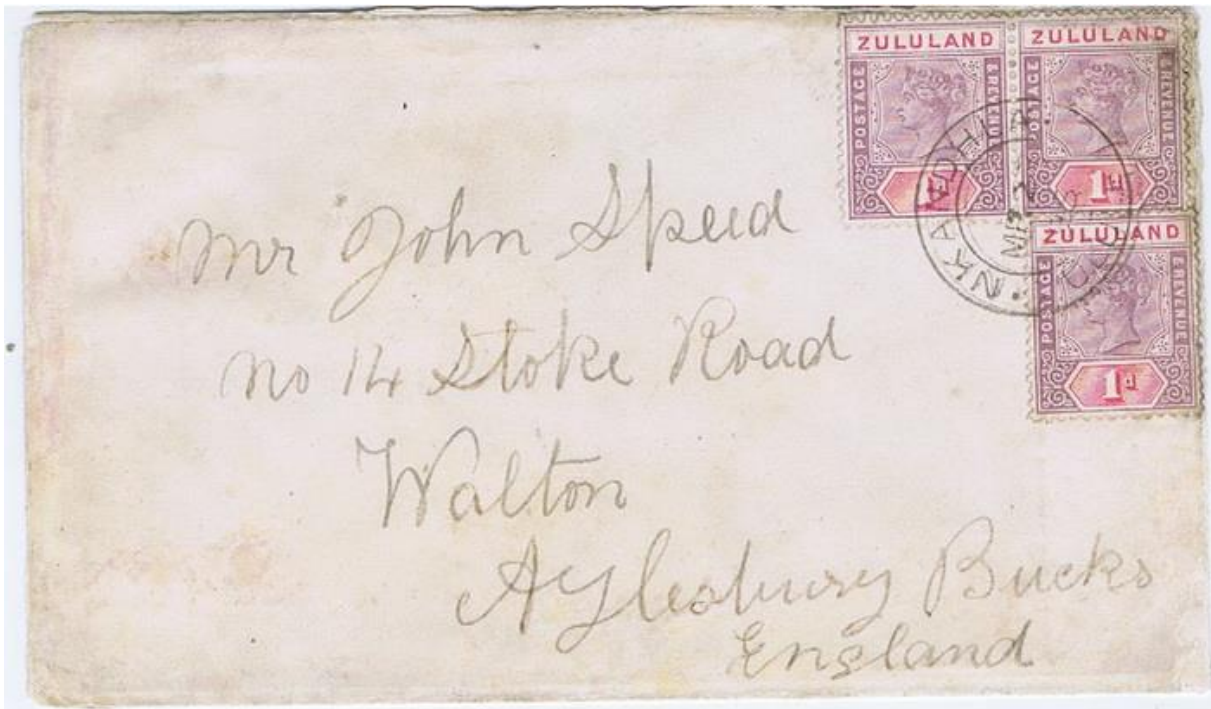 ZULULAND
POSTAGE
& REVENUE
1d
ZULULAND
POSTAGE
& REVENUE
1d
ZULULAND
POSTAGE
& REVENUE
1d
Mr John Speed
No 14 Stoke Road
Walton
Aylesbury Bucks
England